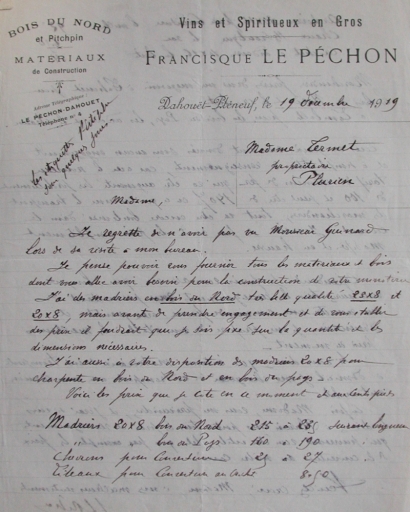 BOIS DU NORD
et Pitchpin
MATÉRIAUX
de Construction
Adresse Télégraphique
LE PÉCHON-DAHOUËT
Téléphone n° 4
Vins et Spiritueux en Gros
FRANCISQUE LE PÉCHON
Dahouët-Pléneuf, le 19 décembre 1919
quelques jours
Madame Termet
propriétaire
Plurien
Madame,
Je regrette de n'avoir pas vu Monsieur Guinard
lors de sa visite à mon bureau.
Je pense pouvoir vous fournir tous les matériaux et bois
dont vous allez avoir besoin pour la construction de votre
J'ai des madriers en bois du Nord très belle qualité 23x8 et
20x8, mais avant de prendre engagement et de vous établir
des prix il faudrait que je sois fixé sur la quantité et les
dimensions nécessaires.
J'ai aussi à votre disposition des madriers 20x8 pour
charpente en bois du Nord et en bois du pays.
Voici les prix que je cote en ce moment
Madriers 20x8 bois du Nord 215 à 285 suivant longueur
" bois du Pays 160 à 190
Chevrons pour Couverture 25 à 27
Liteaux pour Couverture 8.50